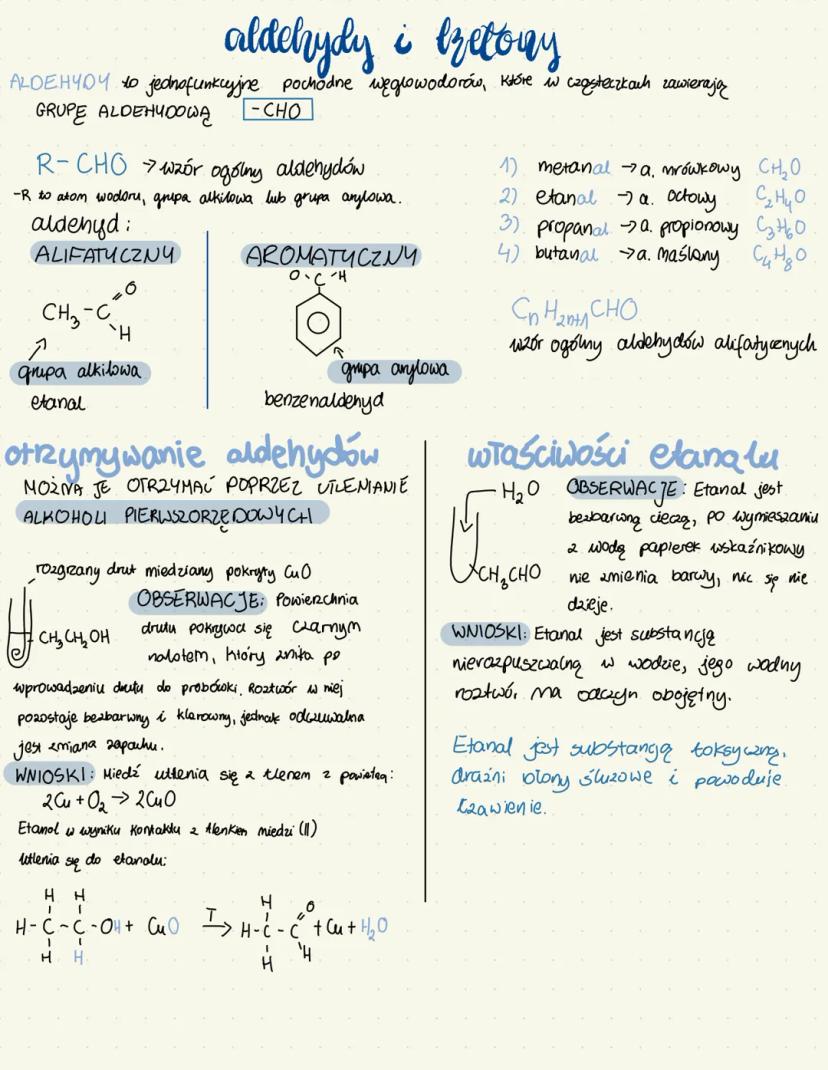 aldehydy i ketony
ALDEHYDY to jednofunkcyjne pochodne węglowodorów, które w cząsteczkach zawierają
GRUPĘ ALDEHYDOWĄ -CHO
R-CHO → wzór ogólny aldehydów
-R to atom wodoru, grupa alkilowa lub grupa arylowa.
aldehyd:
ALIFATYCZNY
CH₃-C
O
H
grupa alkilowa
etanal
AROMATYCZNY
O C H
grupa arylowa
benzenaldehyd
1) metanal → a. mrówkowy CH₂O
2) etanal → a. octowy C₂H₄O
3) propanal → a. propionowy C₃H₆O
4) butanal → a. masłowy C₄H₈O
CₙH₂ₙ₊₁CHO
wzór ogólny aldehydów alifatycznych
otrzymywanie aldehydów
MOŻNA JE OTRZYMAĆ POPRZEZ UTLENIANIE
ALKOHOLI PIERWSZORZĘDOWYCH
rozgrzany drut miedziany pokryty CuO
CH₃CH₂OH
OBSERWACJE: Powierzchnia
drutu pokrywa się czarnym
nalotem, który znika po
wprowadzeniu drutu do probówki. Roztwór w niej
pozostaje bezbarwny i klarowny, jednak odczuwalna
jest zmiana zapachu.
WNIOSKI: Miedź utlenia się z tlenem z powietrza:
2Cu + O₂ → 2CuO
Etanol w wyniku kontaktu z tlenkiem miedzi (II)
utlenia się do etanalu:
H H
H-C-C-OH + CuO T→ H-C-C + Cu + H₂O
H H
H
O
H
H
właściwości etanalu
H₂O
CH₃CHO
OBSERWACJE: Etanal jest
bezbarwną cieczą, po wymieszaniu
z wodą papierek wskaźnikowy
nie zmienia barwy, nic się nie
dzieje.
WNIOSKI: Etanal jest substancją
nierozpuszczalną w wodzie, jego wodny
roztwór ma odczyn obojętny.
Etanal jest substancją toksyczną,
drażni błony śluzowe i powoduje
łzawienie.